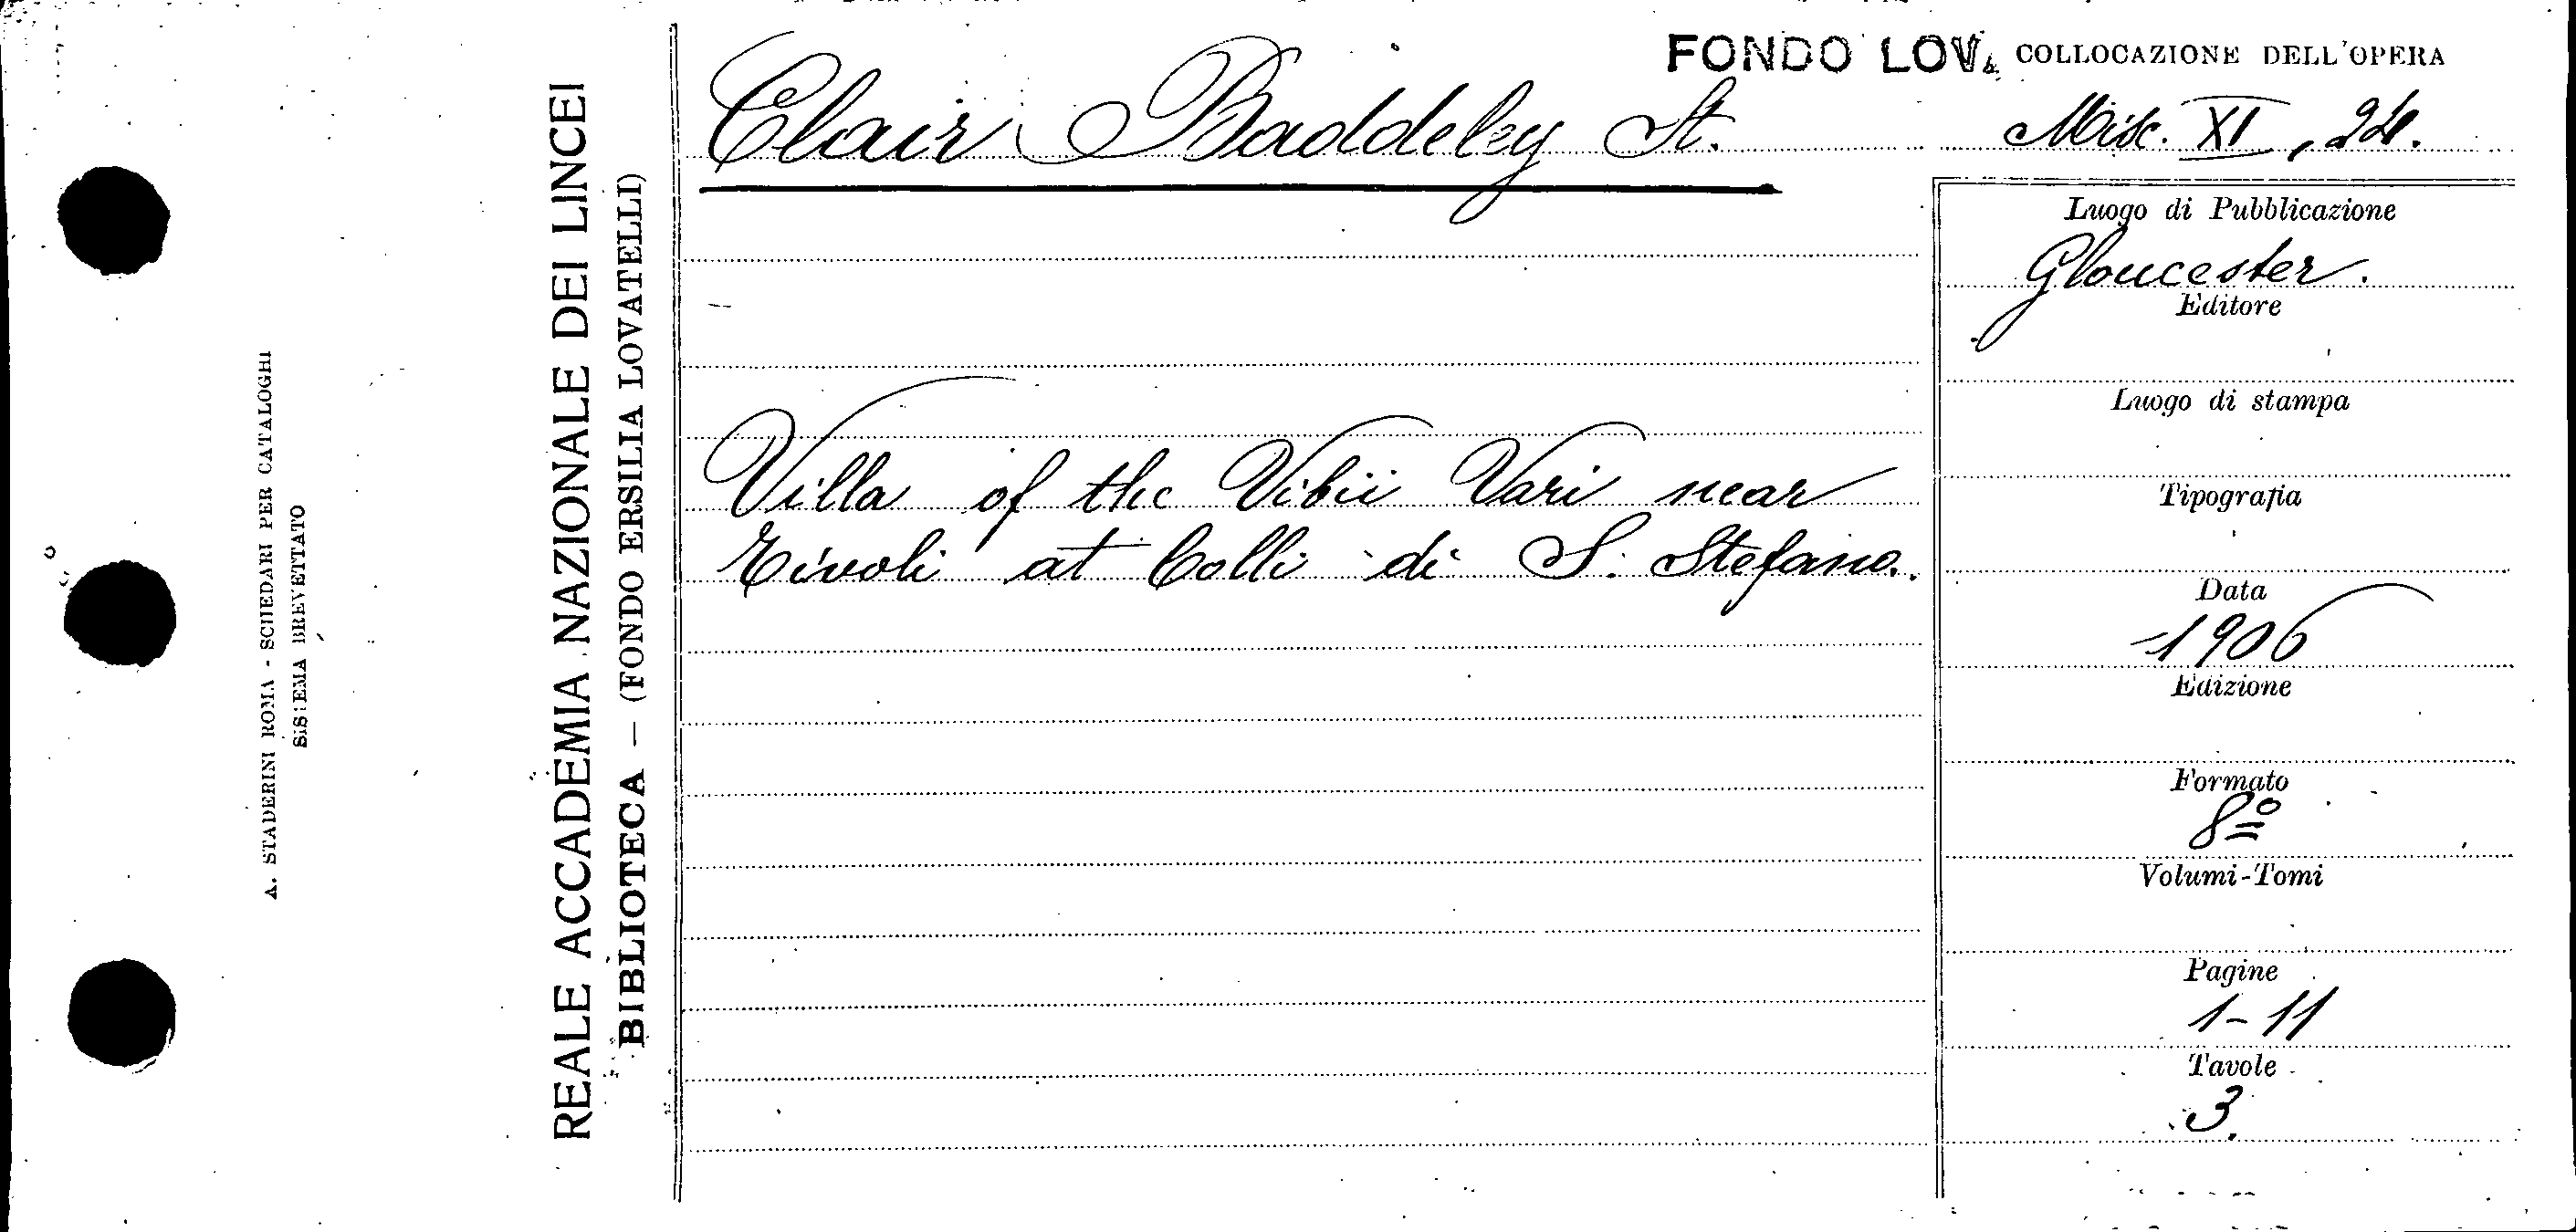 A. STADERINI ROMA - SCHEDARI PER CATALOGHI
SISTEMA BREVETTATO
REALE ACCADEMIA NAZIONALE DEI LINCEI
BIBLIOTECA — (FONDO ERSILIA LOVATELLI)
FONDO LOV. COLLOCAZIONE DELL'OPERA
Clair Baddeley St.
Misc. XI, 24.
Villa of the Vibii Vari near
Tivoli at Colli di S. Stefano.
Luogo di Pubblicazione
Gloucester.
Editore
Luogo di stampa
Tipografia
Data
1906
Edizione
Formato
8º
Volumi-Tomi
Pagine
1-11
Tavole
3.